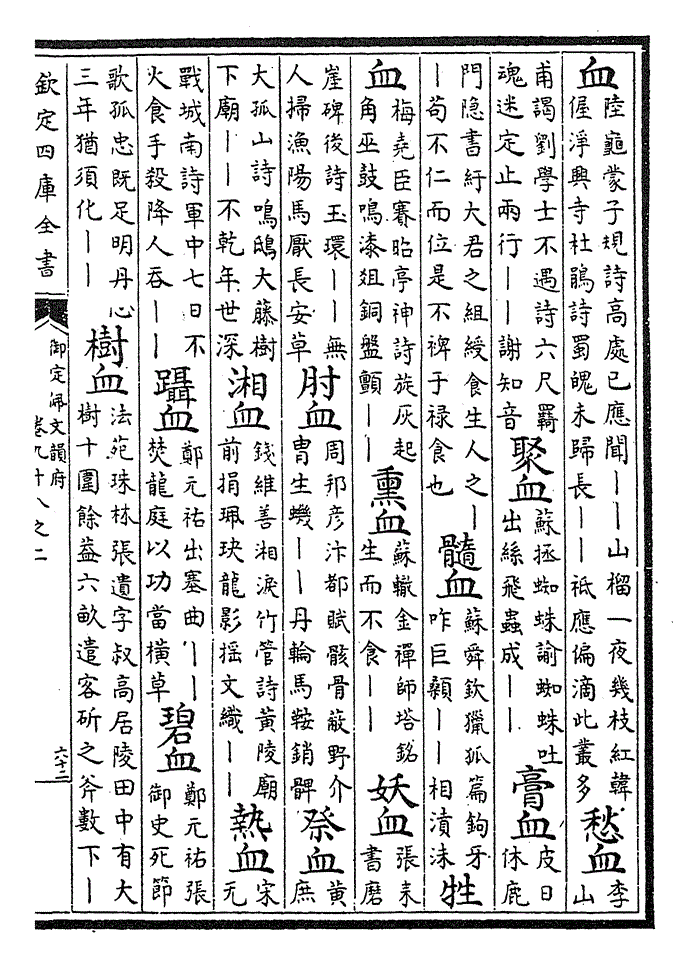 血陸龜蒙子規詩高處已應聞——山榴一夜幾枝紅韓偓浮興寺杜鵑詩蜀魄未歸長——祗應偏滴此叢多愁血李山
甫謁劉學士不遇詩六尺羇魂迷定止兩行——謝知音聚血蘇拯蜘蛛諭蜘蛛吐出絲飛蟲成——膏血皮日休鹿
門隱書紆大君之組綬食生人之——苟不仁而位是不裨于禄食也髓血蘇舜欽獵狐篇鉤牙咋巨顙——相漬沫牲
血梅堯臣賽昭亭神詩旋灰起角巫鼓鳴漆爼銅盤顫——熏血蘇轍金禪師塔銘生而不食——妖血張耒書磨
崖碑後詩玉環——無人掃漁陽馬厭長安草肘血周邦彦汴都賦骸骨蔽野介胄生蟣——丹輪馬鞍銷髀祭血黄庶
大孤山詩鳴鴟大藤樹下廟——不乾年世深湘血錢維善湘淚竹管詩黄陵廟前捐珮玦龍影摇文織——熱血宋无
戰城南詩軍中七日不火食手殺降人吞——躡血鄭元祐出塞曲——焚龍庭以功當横草碧血鄭元祐張御史死節
歌孤忠既足明丹心三年猶須化——樹血法苑珠林張遺字叔高居陵田中有大樹十圍餘葢六畝遣客斫之斧數下—
欽定四庫全書
御定佩文韻府
卷九十八之二
六十二